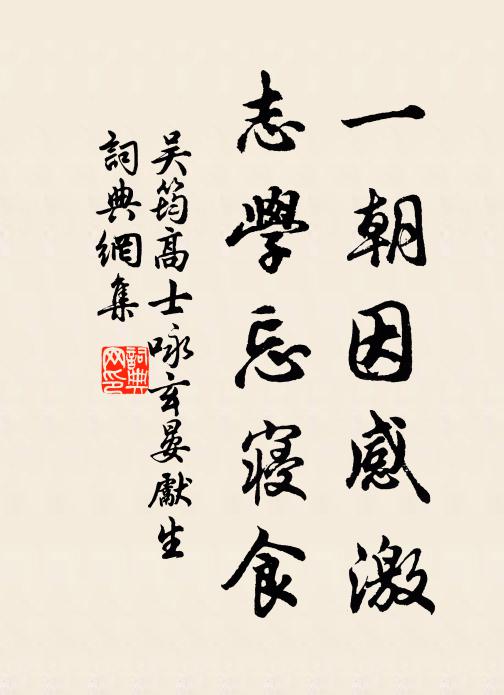 一朝因感激
志學忘寢食
吴筠高士咏玄晏獻生
詞典網集
詞典网印